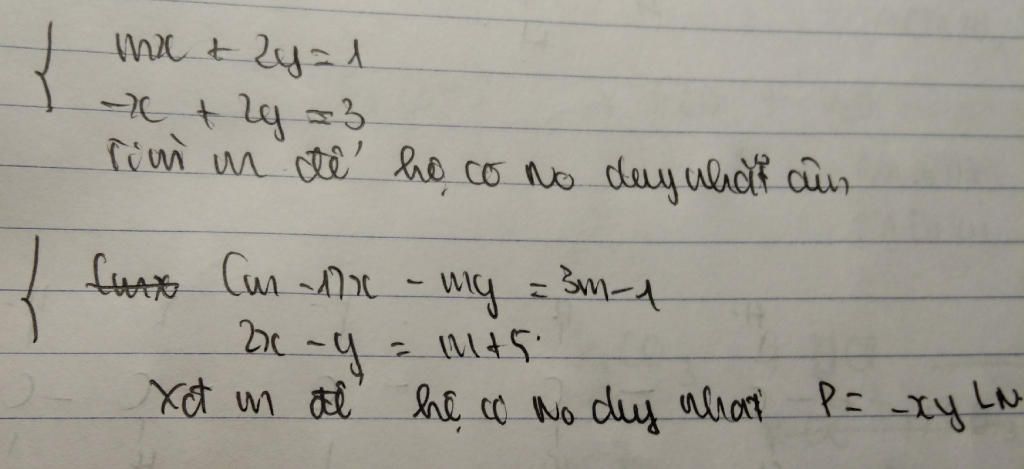 mx + 2y = 1
-x + 2y = 3
Tìm m để hệ có no duy nhất âm
(m - 1)x - my = 3m - 1
2x - y = m + 5.
Xđ m để hệ có no duy nhất P = -xy LN.